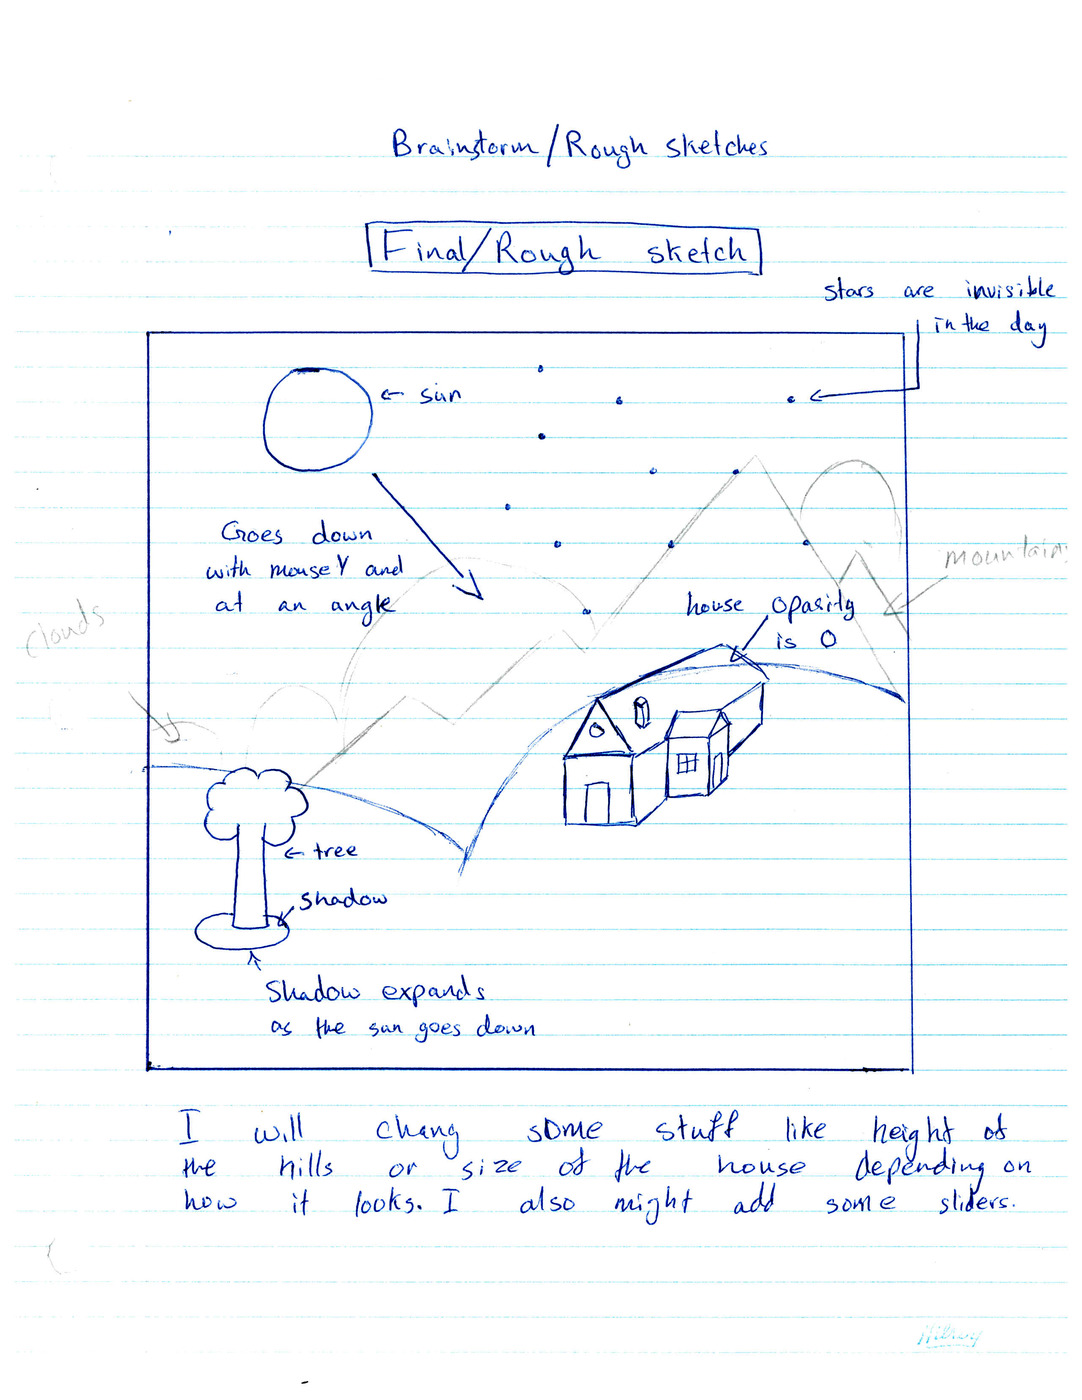 Brainstorm/Rough sketches
Final/Rough sketch
stars are invisible
in the day
← sun
Goes down
with mouseY and
at an angle
clouds
mountains
house opasity
is 0
← tree
shadow
Shadow expands
as the sun goes down
I will chang some stuff like height of
the hills or size of the house depending on
how it looks. I also might add some sliders.
Hilroy